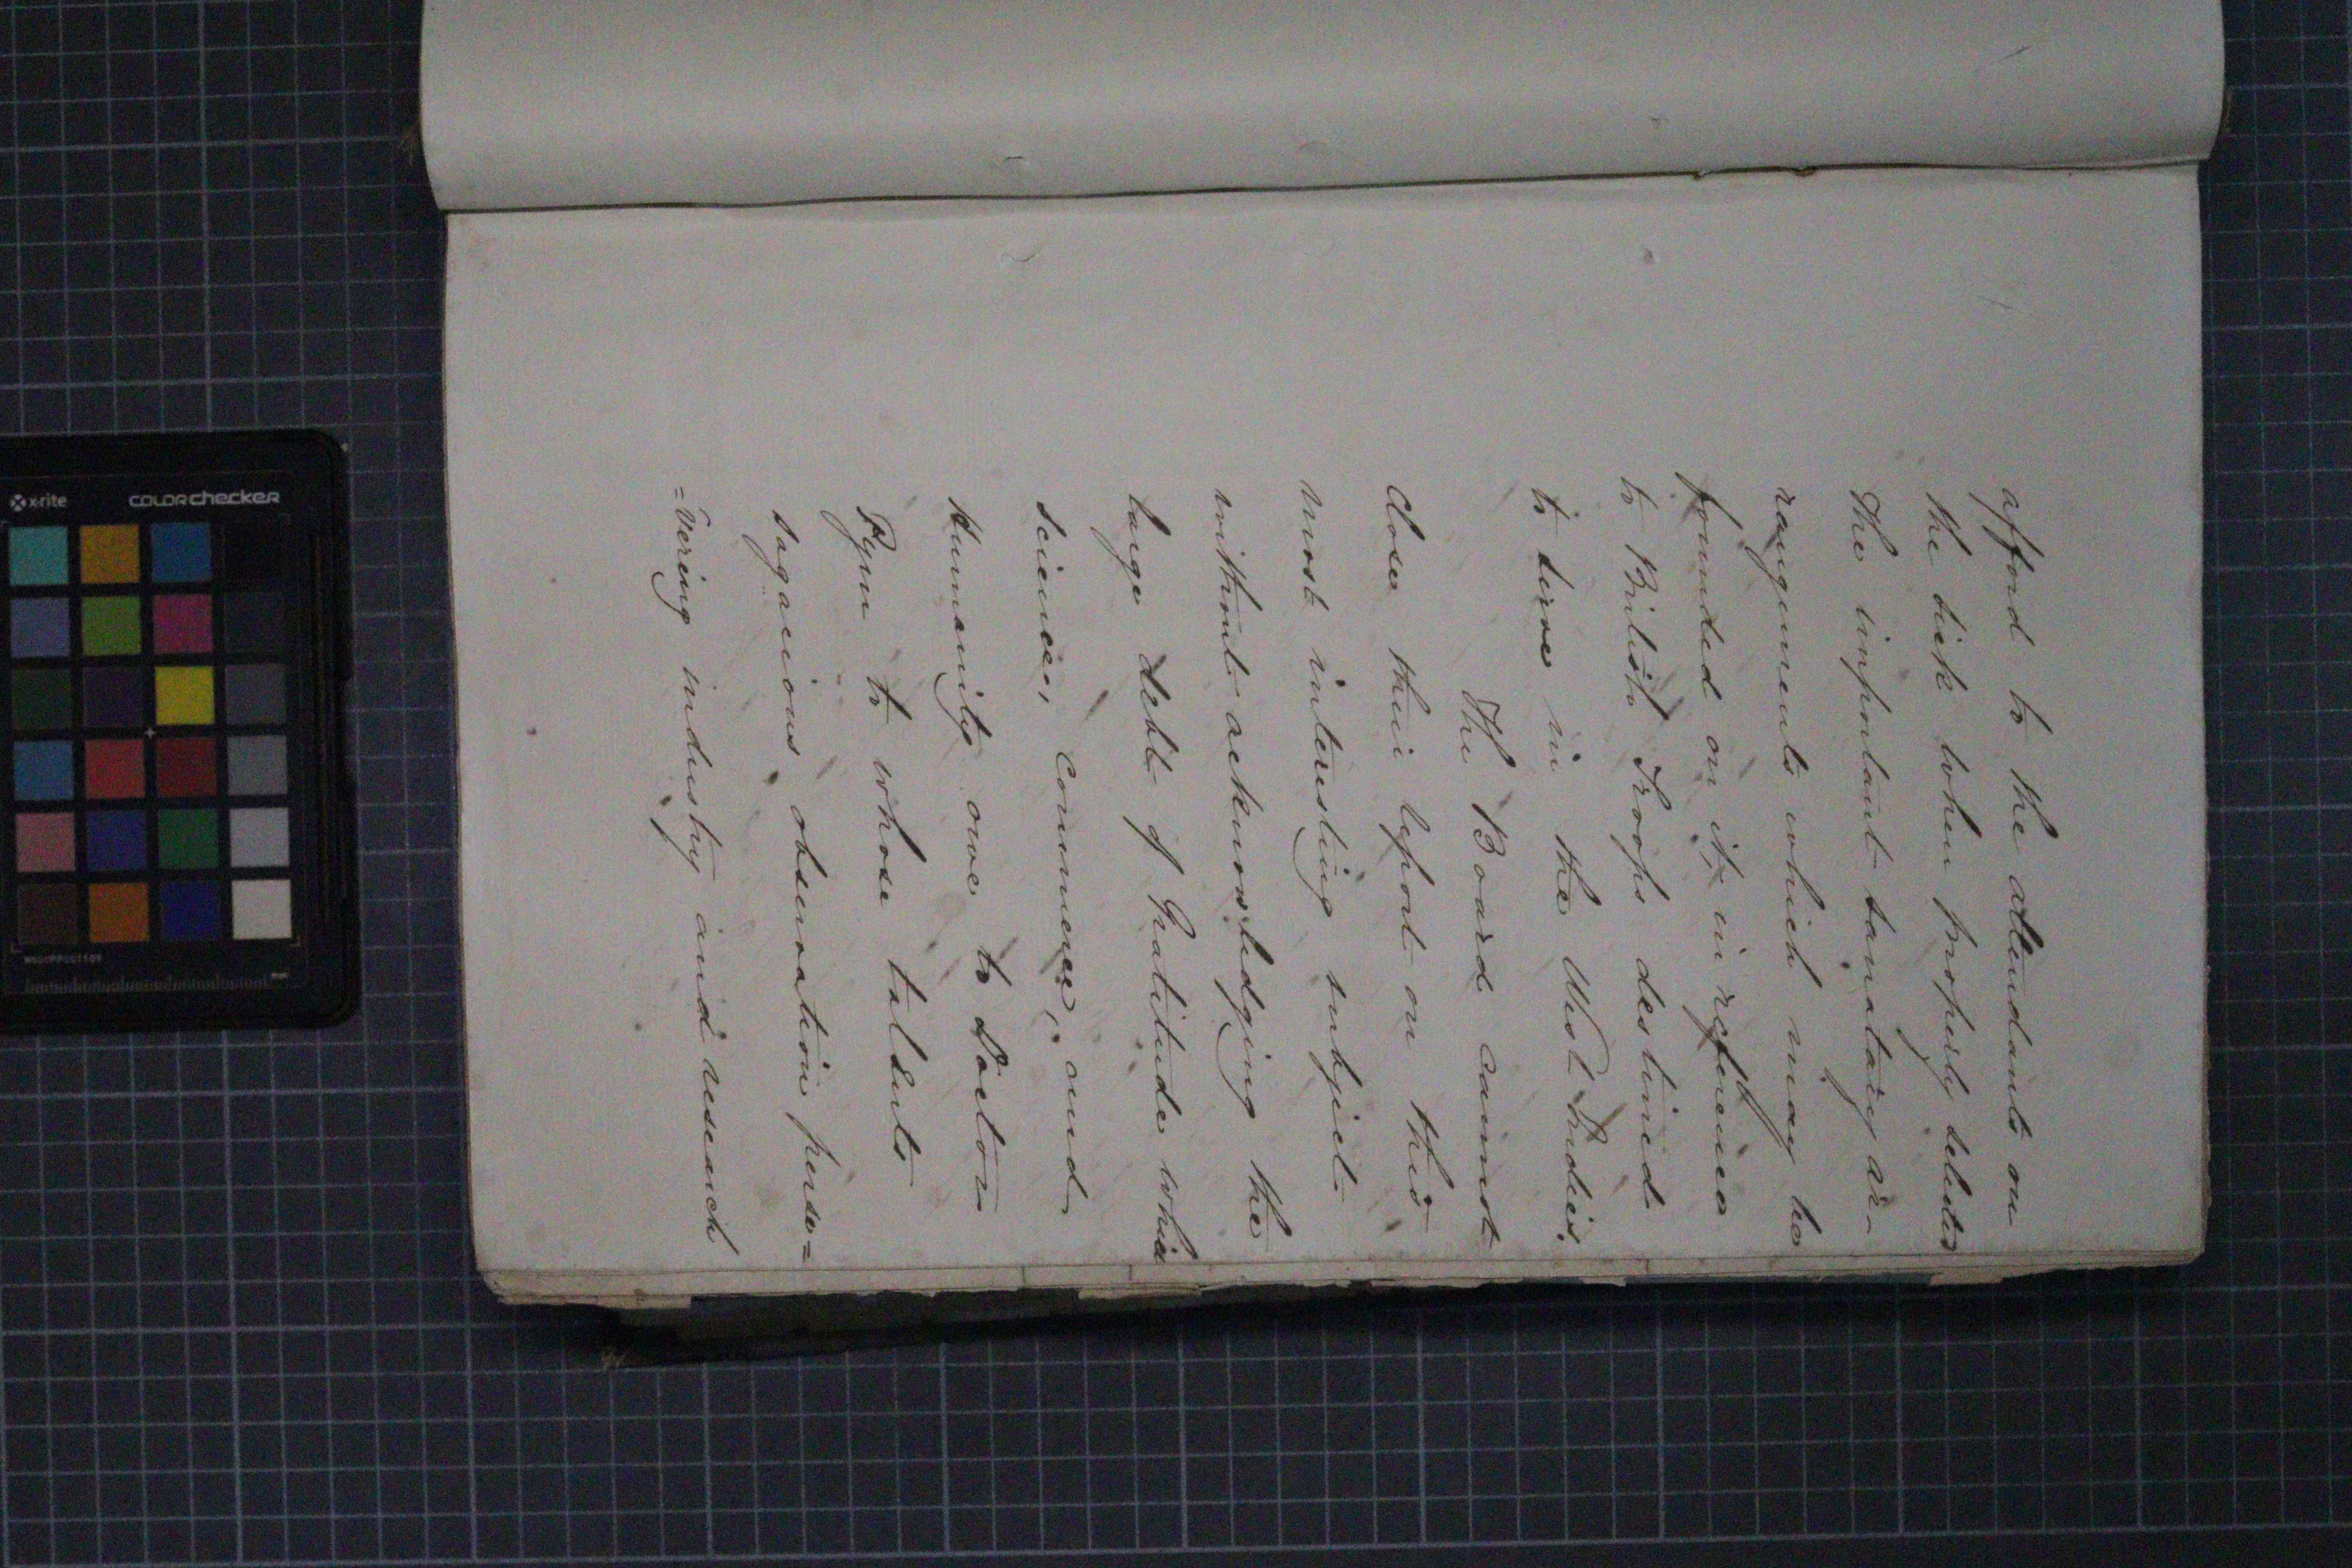 afford to the attendants on
the sick when properly selected
The important sanatary ar-
rangements which may be
founded on it, in reference
to British Troops destined
to serve in the West Indies.
The Board cannot
close their report on this
most interesting subject
without acknowledging the
large debt of Gratitude which
science, Commerce, and
Humanity owe to Doctor
Pym to whose talents
sagacious observation perse=
=vering industry and research
x-rite
COLORchecker